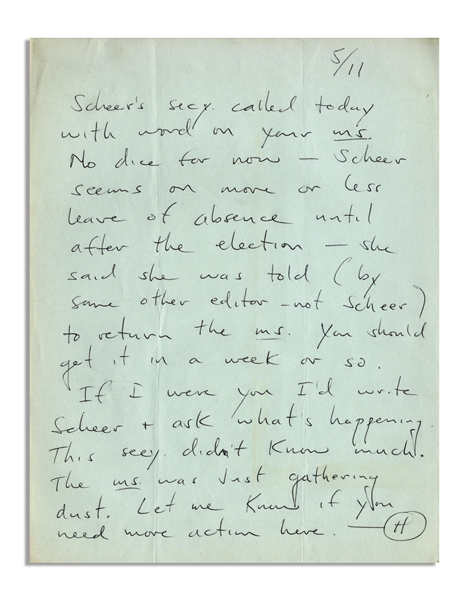 5/11
Scheer's secy. called today
with word on your ms.
No dice for now — Scheer
seems on more or less
leave of absence until
after the election — she
said she was told (by
some other editor - not Scheer)
to return the ms. You should
get it in a week or so.
If I were you I'd write
Scheer + ask what's happening.
This secy. didn't know much.
The ms. was just gathering
dust. Let me know if you
need more action here. — H